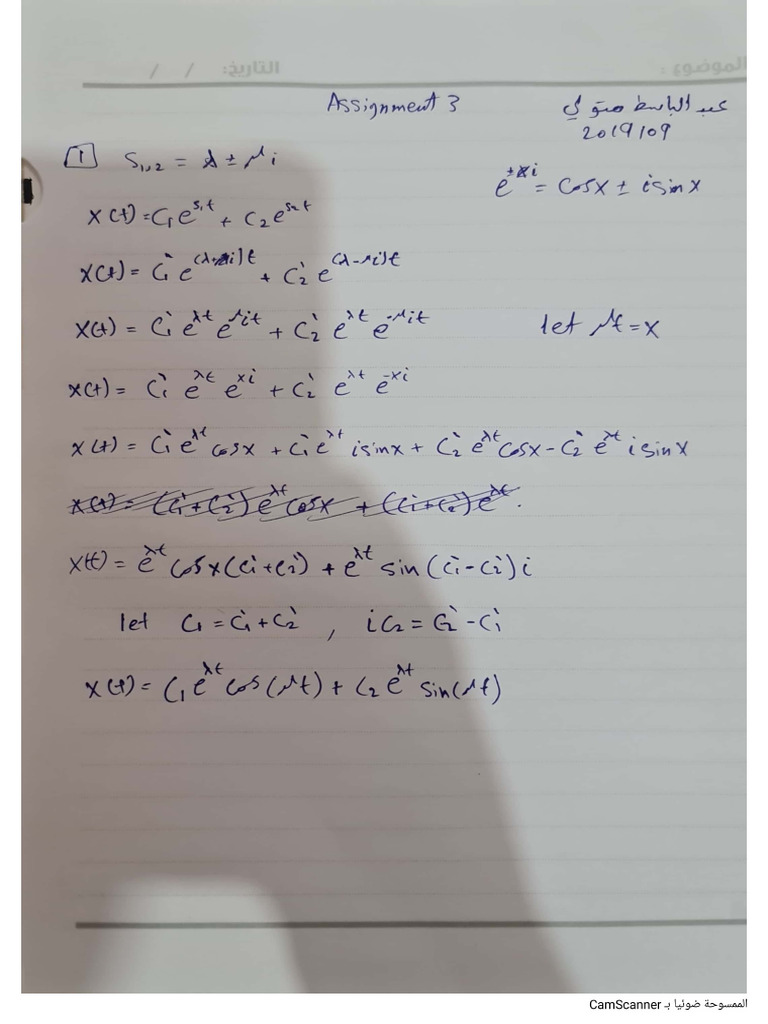 الموضوع : التاريخ: / /
Assignment 3 عبد الباسط متولي
2019109
1 S₁,₂ = λ ± μi
e^{±xi} = cosx ± i sinx
x(t) = C₁e^{s₁t} + C₂e^{s₂t}
x(t) = C₁̀ e^{(λ+μi)t} + C₂̀ e^{(λ-μi)t}
x(t) = C₁̀ e^{λt} e^{μit} + C₂̀ e^{λt} e^{-μit} let μt = x
x(t) = C₁̀ e^{λt} e^{xi} + C₂̀ e^{λt} e^{-xi}
x(t) = C₁̀ e^{λt} cosx + C₁̀ e^{λt} i sinx + C₂̀ e^{λt} cosx - C₂̀ e^{λt} i sinx
x(t) = (C₁̀ + C₂̀) e^{λt} cosx + (C₁̀ + C₂̀) e^{λt} .
x(t) = e^{λt} cosx (C₁̀ + C₂̀) + e^{λt} sin (C₁̀ - C₂̀) i
let C₁ = C₁̀ + C₂̀ , i C₂ = C₂̀ - C₁̀
x(t) = C₁ e^{λt} cos(μt) + C₂ e^{λt} sin(μt)
الممسوحة ضوئيا بـ CamScanner